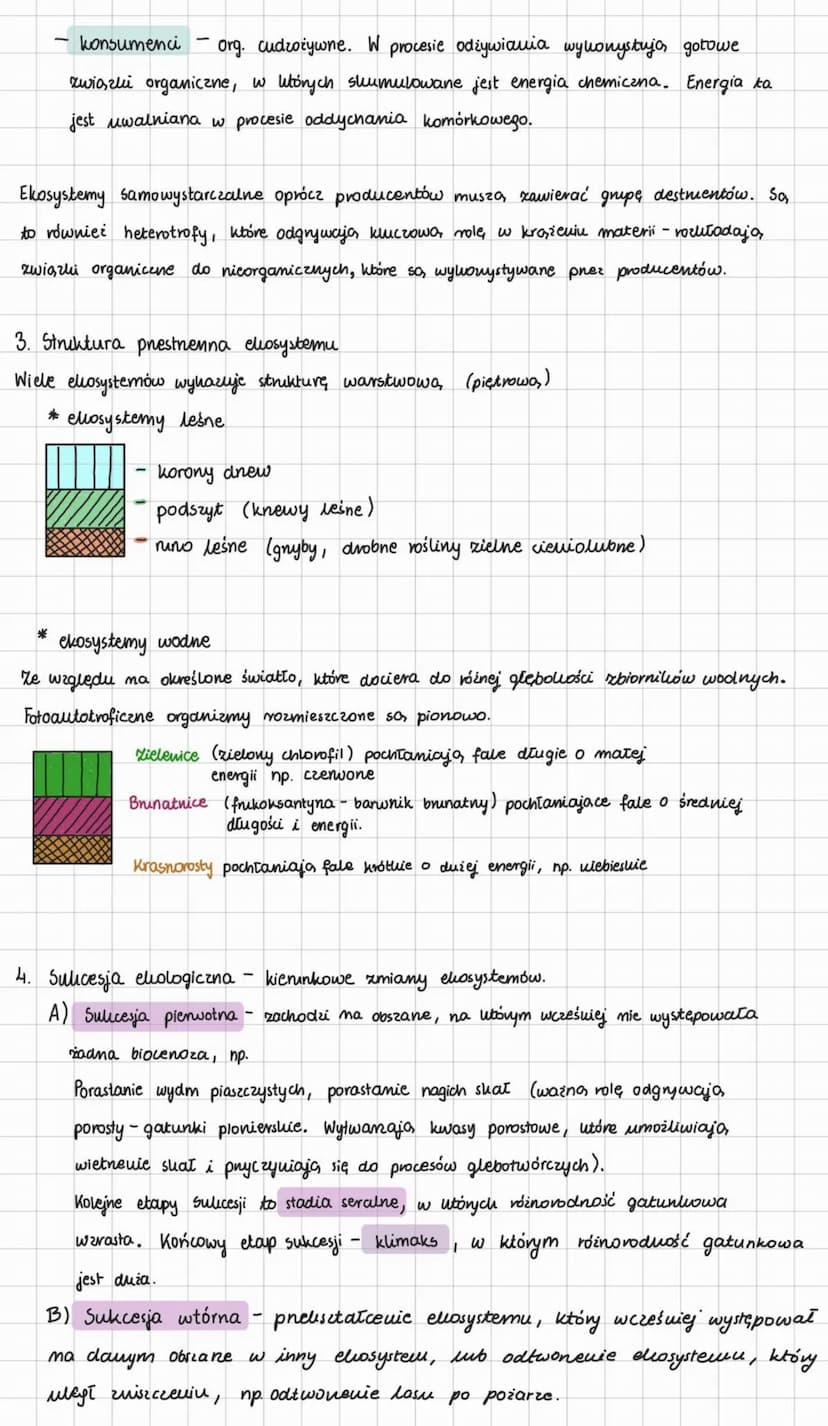 - konsumenci - org. cudzożywne. W procesie odżywiania wykorzystują gotowe
związki organiczne, w których skumulowane jest energia chemiczna. Energia ta
jest uwalniana w procesie oddychania komórkowego.
Ekosystemy samowystarczalne oprócz producentów muszą zawierać grupę destruentów. Są
to również heterotrofy, które odgrywają kluczową rolę w krążeniu materii - rozkładają
związki organiczne do nieorganicznych, które są wykorzystywane przez producentów.
3. Struktura przestrzenna ekosystemu
Wiele ekosystemów wykazuje strukturę warstwową (piętrową)
* ekosystemy leśne
- korony drzew
- podszyt (krzewy leśne)
- runo leśne (grzyby, drobne rośliny zielne cieniolubne)
* ekosystemy wodne
Ze względu na określone światło, które dociera do różnej głębokości zbiorników wodnych.
Fotoautotroficzne organizmy rozmieszczone są pionowo.
Zielenice (zielony chlorofil) pochłaniają fale długie o małej
energii np. czerwone
Brunatnice (fukoksantyna - barwnik brunatny) pochłaniające fale o średniej
długości i energii.
Krasnorosty pochłaniają fale krótkie o dużej energii, np. niebieskie
4. Sukcesja ekologiczna - kierunkowe zmiany ekosystemów.
A) Sukcesja pierwotna - zachodzi na obszarze, na którym wcześniej nie występowała
żadna biocenoza, np.
Porastanie wydm piaszczystych, porastanie nagich skał (ważną rolę odgrywają
porosty - gatunki pionierskie. Wytwarzają kwasy porostowe, które umożliwiają
wietrzenie skał i przyczyniają się do procesów glebotwórczych).
Kolejne etapy sukcesji to stadia seralne, w których różnorodność gatunkowa
wzrasta. Końcowy etap sukcesji - klimaks, w którym różnorodność gatunkowa
jest duża.
B) Sukcesja wtórna - przekształcenie ekosystemu, który wcześniej występował
na danym obszarze w inny ekosystem, lub odtworzenie ekosystemu, który
uległ zniszczeniu, np. odtworzenie lasu po pożarze.